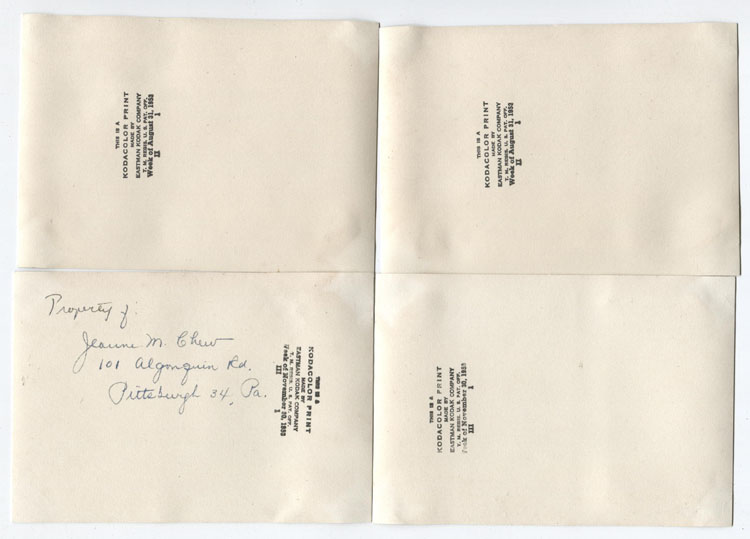 THIS IS A
KODACOLOR PRINT
MADE BY
EASTMAN KODAK COMPANY
T. M. REGIS. U. S. PAT. OFF.
Week of August 31, 1953
II 1
THIS IS A
KODACOLOR PRINT
MADE BY
EASTMAN KODAK COMPANY
T. M. REGIS. U. S. PAT. OFF.
Week of August 31, 1953
II 1
Property of:
Jeanne M. Chew
101 Algonquin Rd.
Pittsburgh 34, Pa.
THIS IS A
KODACOLOR PRINT
MADE BY
EASTMAN KODAK COMPANY
T. M. REGIS. U. S. PAT. OFF.
Week of November 30, 1953
III 1
THIS IS A
KODACOLOR PRINT
MADE BY
EASTMAN KODAK COMPANY
T. M. REGIS. U. S. PAT. OFF.
Week of November 30, 1953
III 1